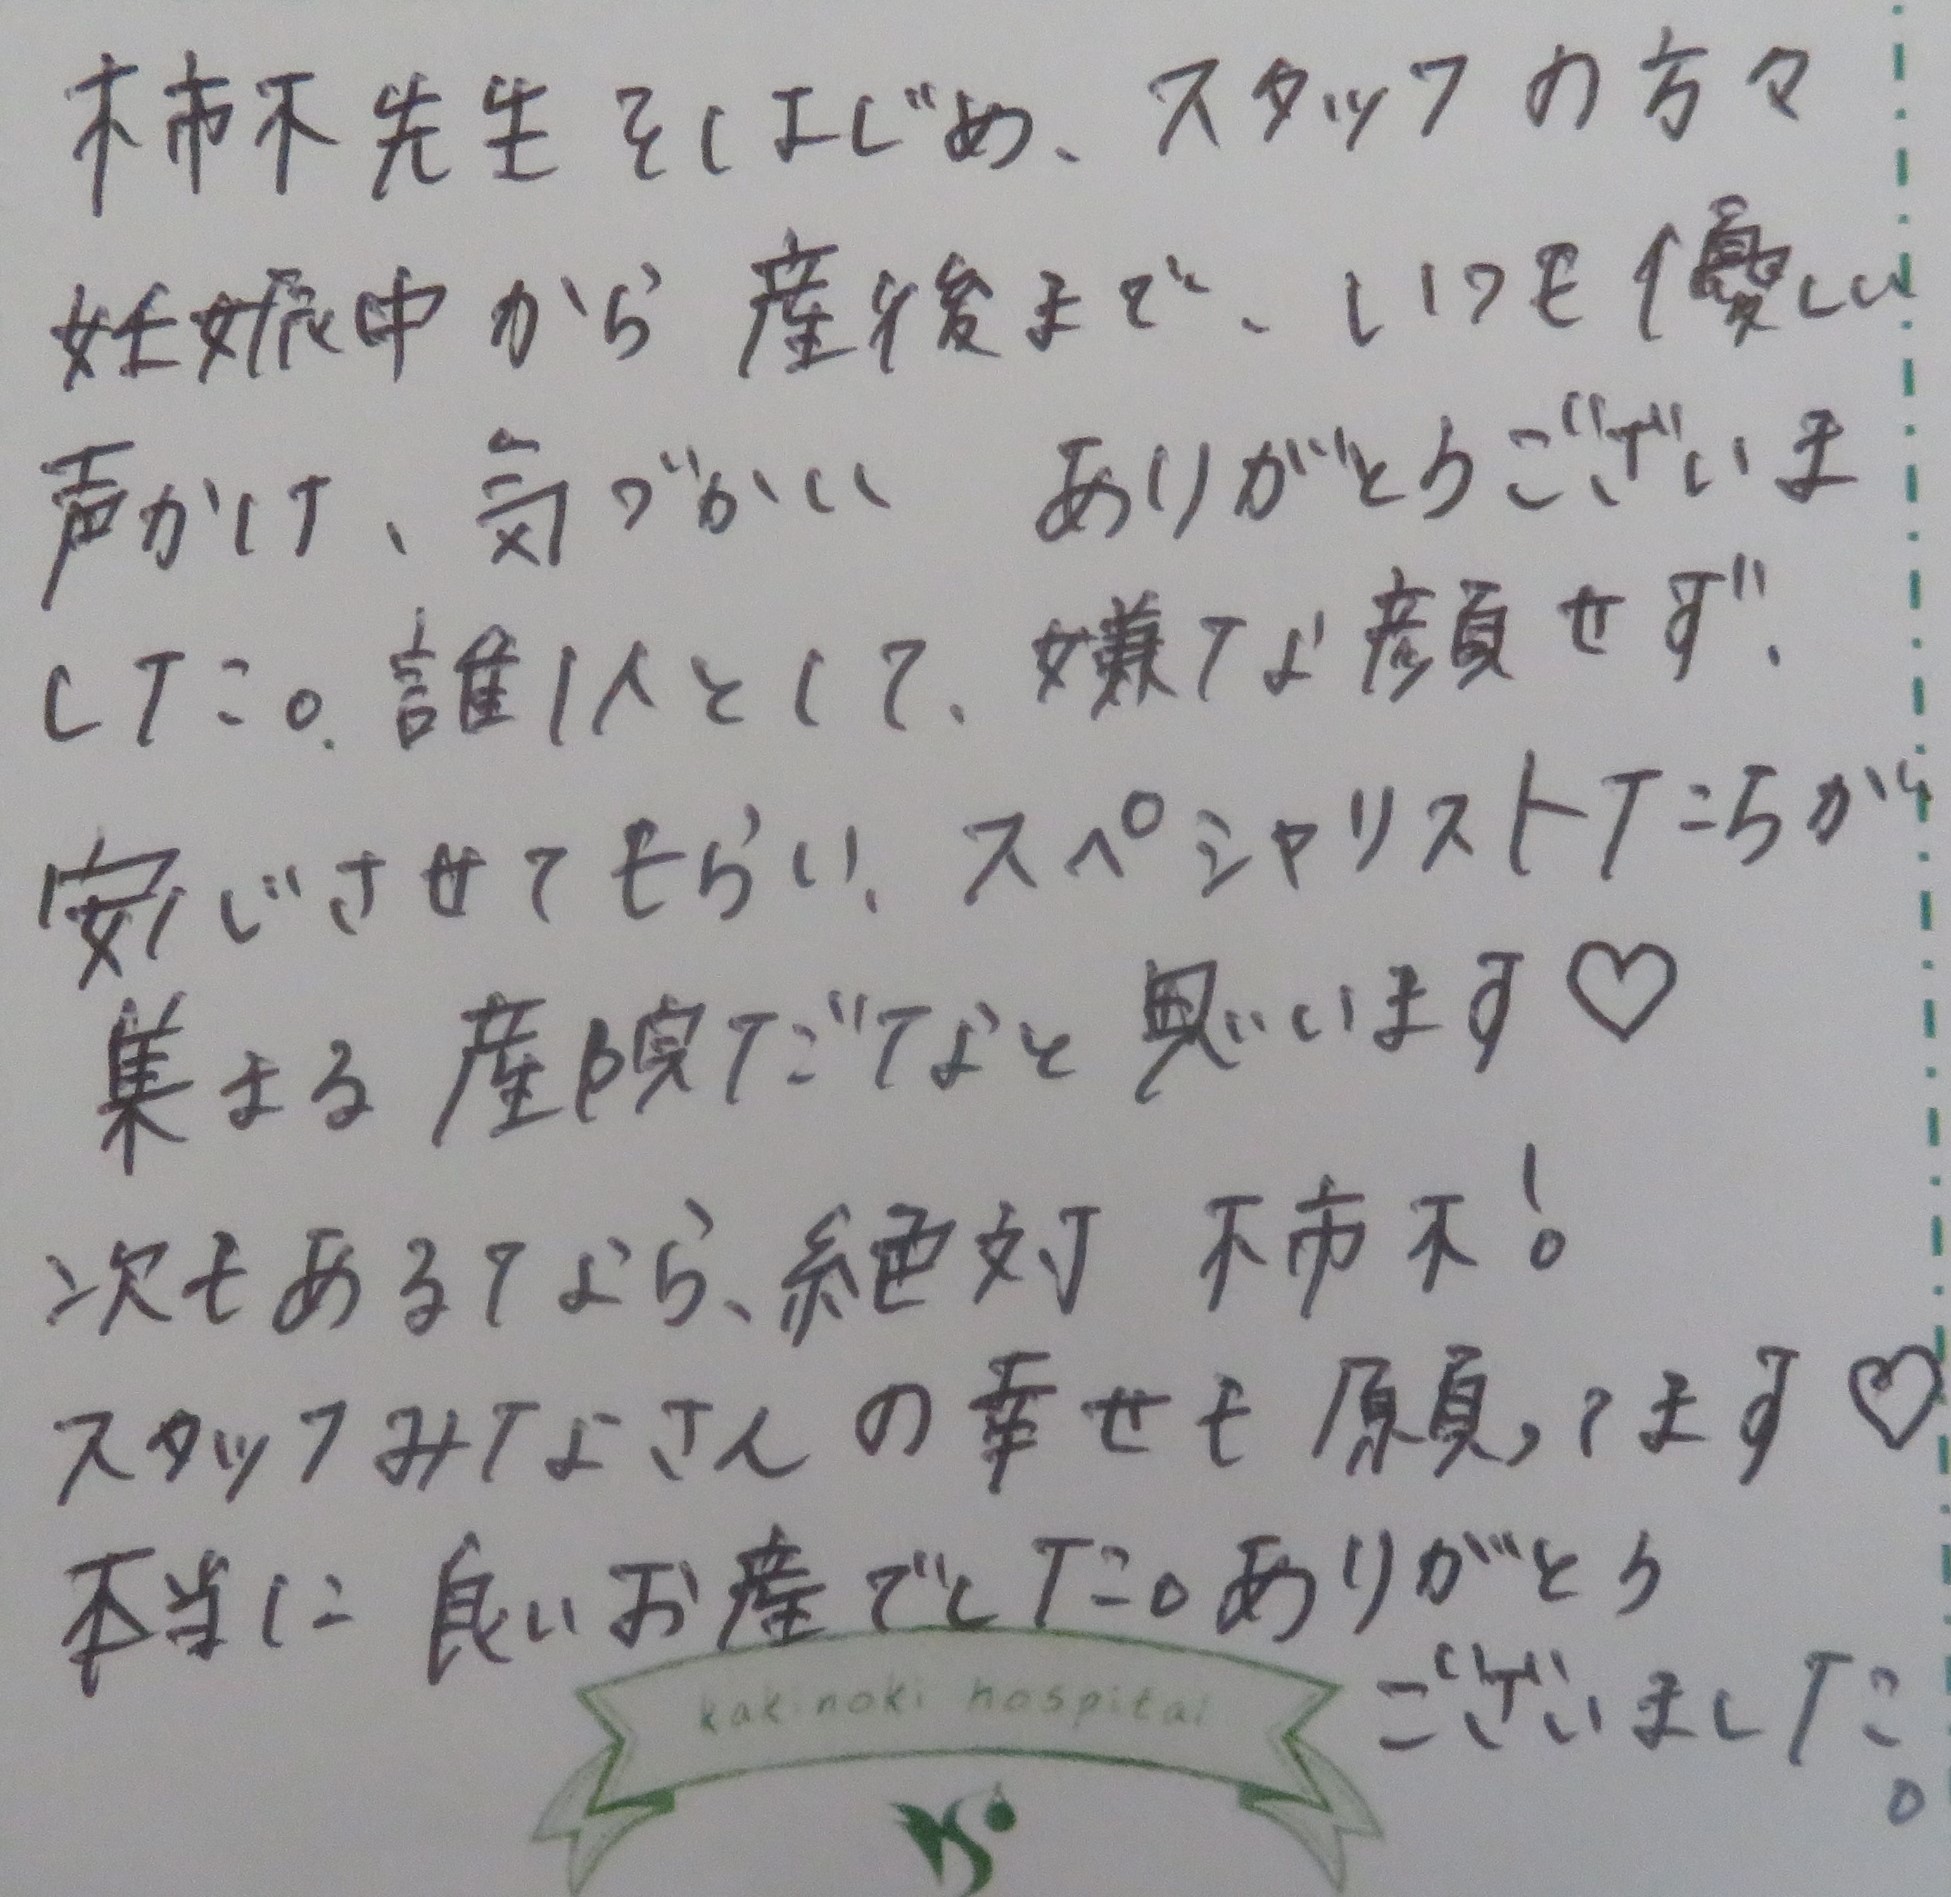 柿木先生をはじめ、スタッフの方々
妊娠中から産後まで、いつも優しい
声かけ、気づかい ありがとうございま
した。誰1人として、嫌な顔せず、
安心させてもらい、スペシャリストたちが
集まる産院だなと思います♡
次もあるなら、絶対 柿木!
スタッフみなさんの幸せも願ってます♡
本当に良いお産でした。ありがとう
ございました。
kakinoki hospital